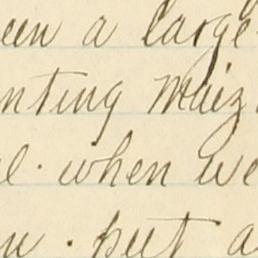 een a large
nting maiz
el. when we
w. put a